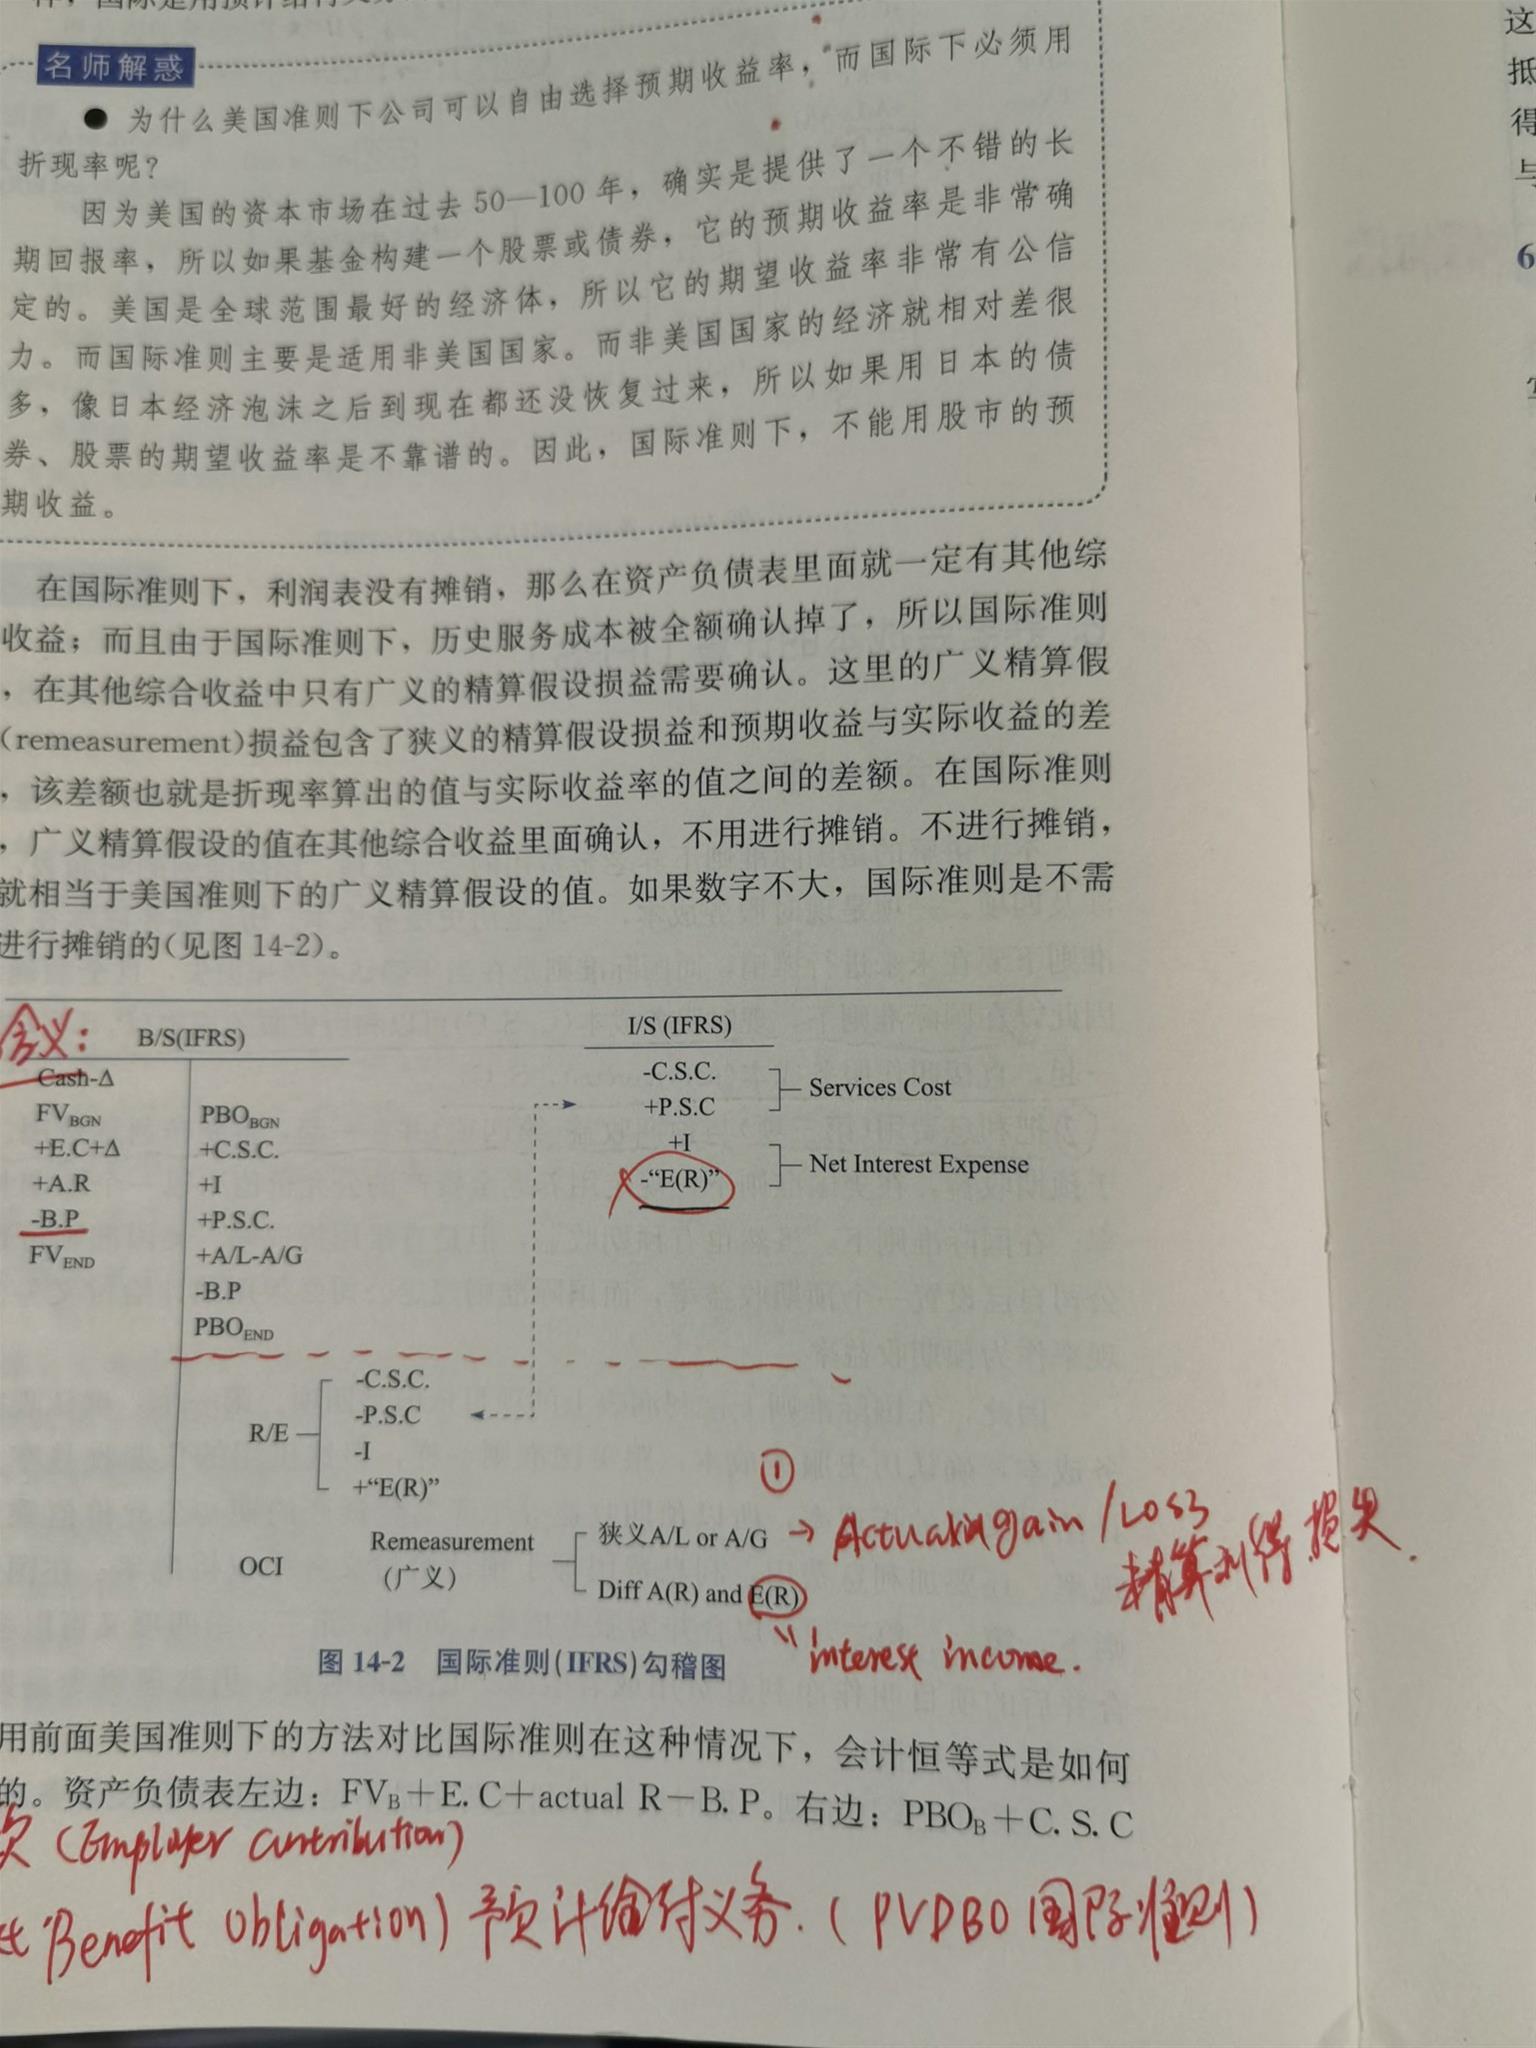 名师解惑
● 为什么美国准则下公司可以自由选择预期收益率，而国际下必须用
折现率呢？
因为美国的资本市场在过去 50—100 年，确实是提供了一个不错的长
期回报率，所以如果基金构建一个股票或债券，它的预期收益率是非常确
定的。美国是全球范围最好的经济体，所以它的期望收益率非常有公信
力。而国际准则主要是适用非美国国家。而非美国国家的经济就相对差很
多，像日本经济泡沫之后到现在都还没恢复过来，所以如果用日本的债
券、股票的期望收益率是不靠谱的。因此，国际准则下，不能用股市的预
期收益。
在国际准则下，利润表没有摊销，那么在资产负债表里面就一定有其他综
收益；而且由于国际准则下，历史服务成本被全额确认掉了，所以国际准则
，在其他综合收益中只有广义的精算假设损益需要确认。这里的广义精算假
(remeasurement)损益包含了狭义的精算假设损益和预期收益与实际收益的差
，该差额也就是折现率算出的值与实际收益率的值之间的差额。在国际准则
，广义精算假设的值在其他综合收益里面确认，不用进行摊销。不进行摊销，
就相当于美国准则下的广义精算假设的值。如果数字不大，国际准则是不需
进行摊销的(见图 14-2)。
含义：
B/S(IFRS)
Cash-Δ
FVBGN
+E.C+Δ
+A.R
-B.P
FVEND
PBOBGN
+C.S.C.
+I
+P.S.C.
+A/L-A/G
-B.P
PBOEND
I/S (IFRS)
-C.S.C.
+P.S.C
Services Cost
+I
-“E(R)”
Net Interest Expense
R/E
-C.S.C.
-P.S.C
-I
+“E(R)”
①
OCI
Remeasurement
(广义)
狭义A/L or A/G → Actuarial gain / Loss
精算利得损失.
Diff A(R) and E(R)
interest income.
图 14-2 国际准则(IFRS)勾稽图
用前面美国准则下的方法对比国际准则在这种情况下，会计恒等式是如何
的。资产负债表左边：FVB+E. C+actual R－B. P。右边：PBOB+C. S. C
(Employer contribution)
Benefit obligation) 预计给付义务. (PVDBO 国际准则)
这
抵
得
与
6